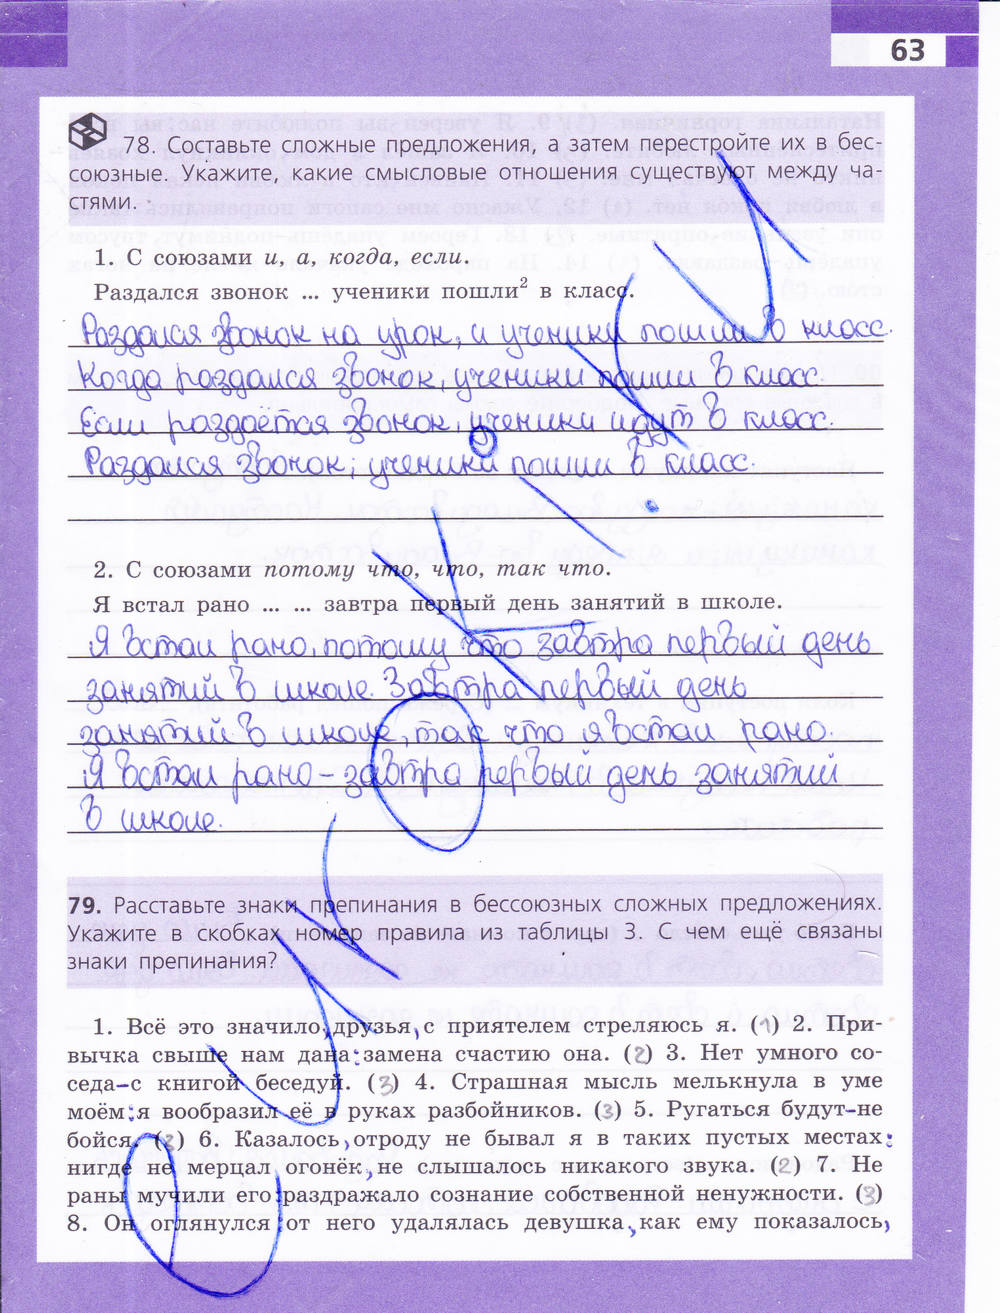 63
78. Составьте сложные предложения, а затем перестройте их в бес-
союзные. Укажите, какие смысловые отношения существуют между ча-
стями.
1. С союзами и, а, когда, если.
Раздался звонок ... ученики пошли² в класс.
Раздался звонок на урок, и ученики пошли в класс.
Когда раздался звонок, ученики пошли в класс.
Если раздаётся звонок, ученики идут в класс.
Раздался звонок; ученики пошли в класс.
2. С союзами потому что, что, так что.
Я встал рано ... ... завтра первый день занятий в школе.
Я встал рано, потому что завтра первый день
занятий в школе. Завтра первый день
занятий в школе, так что я встал рано.
Я встал рано – завтра первый день занятий
в школе.
79. Расставьте знаки препинания в бессоюзных сложных предложениях.
Укажите в скобках номер правила из таблицы 3. С чем ещё связаны
знаки препинания?
1. Всё это значило, друзья, с приятелем стреляюсь я. (1) 2. При-
вычка свыше нам дана: замена счастию она. (2) 3. Нет умного со-
седа – с книгой беседуй. (3) 4. Страшная мысль мелькнула в уме
моём: я вообразил её в руках разбойников. (3) 5. Ругаться будут – не
бойся. (2) 6. Казалось, отроду не бывал я в таких пустых местах:
нигде не мерцал огонёк, не слышалось никакого звука. (2) 7. Не
раны мучили его: раздражало сознание собственной ненужности. (3)
8. Он оглянулся: от него удалялась девушка, как ему показалось,